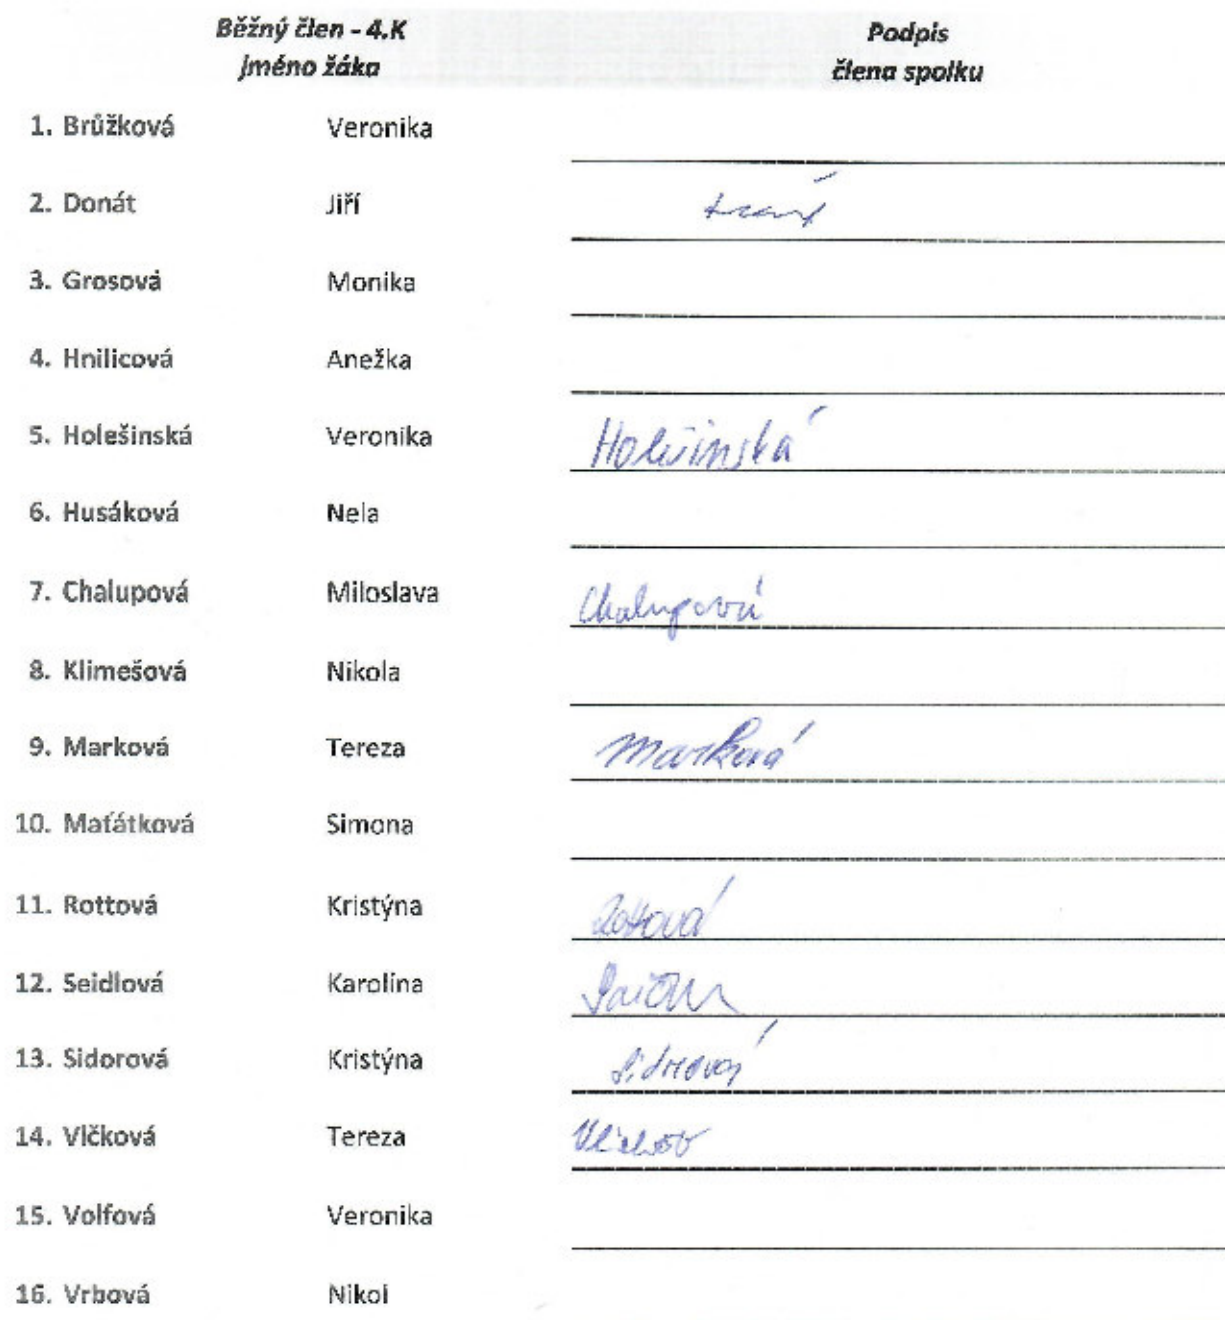 Běžný člen - 4.K
jméno žáka
Podpis
člena spolku
1. Brůžková Veronika
2. Donát Jiří
3. Grosová Monika
4. Hnilicová Anežka
5. Holešinská Veronika Holešinská
6. Husáková Nela
7. Chalupová Miloslava Chalupová
8. Klimešová Nikola
9. Marková Tereza Marková
10. Maťátková Simona
11. Rottová Kristýna Rottová
12. Seidlová Karolína
13. Sidorová Kristýna Sidorová
14. Vlčková Tereza
15. Volfová Veronika
16. Vrbová Nikol